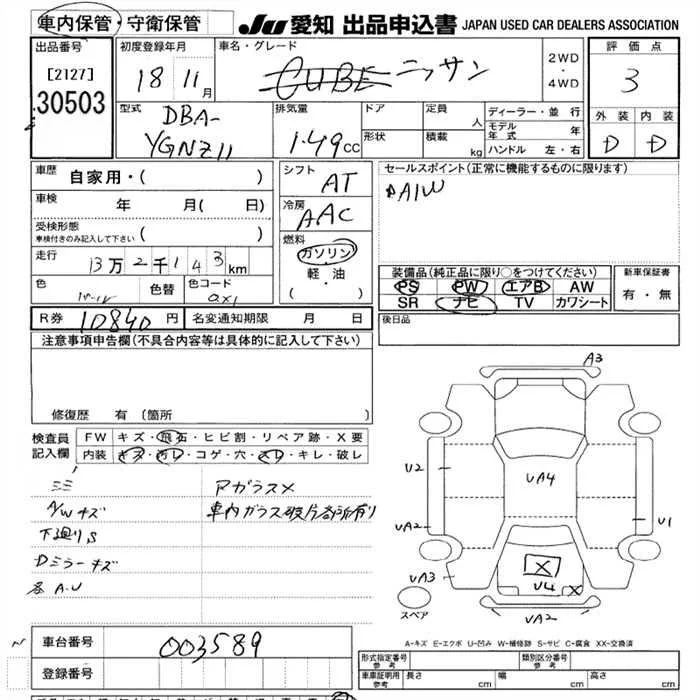 車内保管・守衛保管
JU 愛知 出品申込書 JAPAN USED CAR DEALERS ASSOCIATION
出品番号
[2127]
30503
初度登録年月
18年 11月
車名・グレード
CUBE ニッサン
2WD
・
4WD
評価点
3
外装 内装
D D
型式
DBA-
YGNZ11
排気量
1.49cc
ドア
形状
定員 人
積載 kg
ディーラー・並行
モデル年式 年
ハンドル 左・右
車歴
自家用・( )
車検 年 月( 日)
受検形態
車検付きのみ記入して下さい ( )
走行
13万2千143km
色
パール
色替
色コード
QX1
シフト
AT
冷房
AAC
燃料
ガソリン
・
軽・油
( ・ )
セールスポイント(正常に機能するものに限ります)
AIW
装備品(純正品に限り○をつけてください)
PS PW エアB AW
SR ナビ TV カワシート
新車保証書
有・無
R券 10840円 名変通知期限 月 日
後日品
注意事項申告欄(不具合内容等は具体的に記入して下さい)
修復歴 有 (箇所 )
検査員
記入欄
FW キズ・飛石・ヒビ割・リペア跡・X要
内装 キズ・汚レ・コゲ・穴・スレ・キレ・破レ
ミミ
A/Wキズ
下廻りS
Dミラーキズ
各A.U
Fガラス×
車内ガラス破片各所有り
A3
U2
UA4
UA2
U1
UA3
X
U4
X
UA2
スペア
A-キズ E-エクボ U-凹み W-補修跡 S-サビ C-腐食 XX-交換済
N
車台番号
003589
登録番号
形式指定番号
参考
類別区分番号
参考
車庫証明用
参考
長さ cm
幅 cm
高さ cm